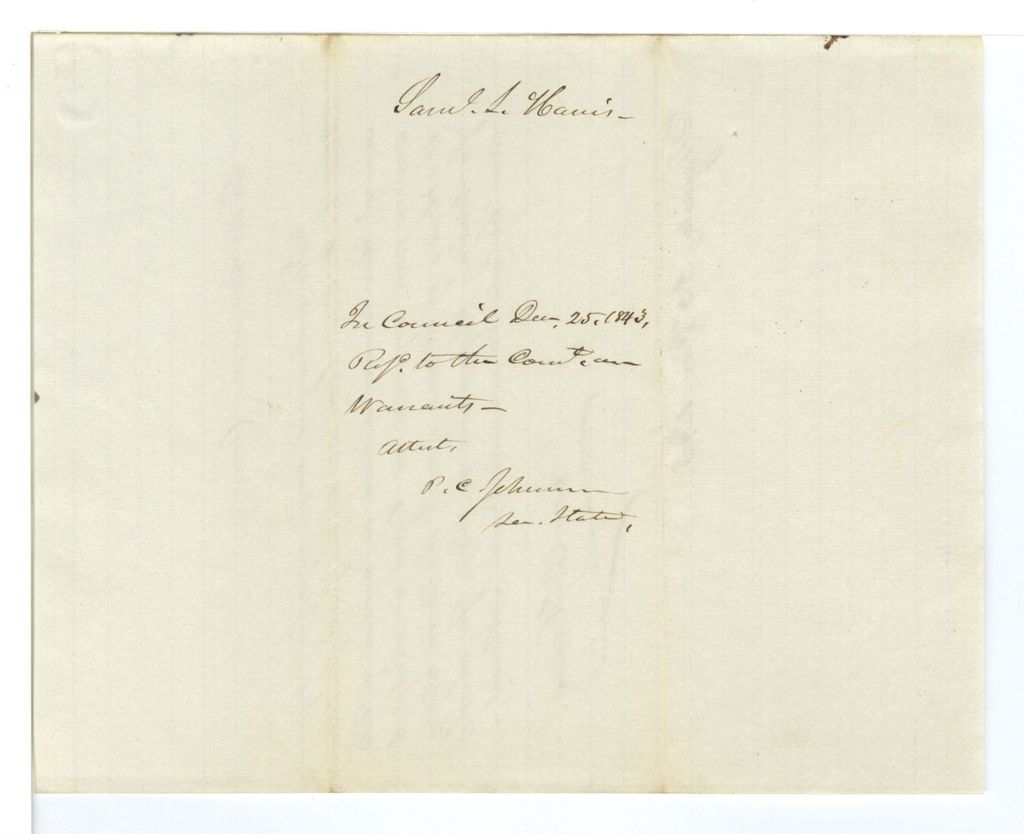 Saml. L. Harris -
In Council Dec, 25, 1843,
Refd. to the Comte. on
Warrants -
Attest,
P. C. Johnson
Sec. State,